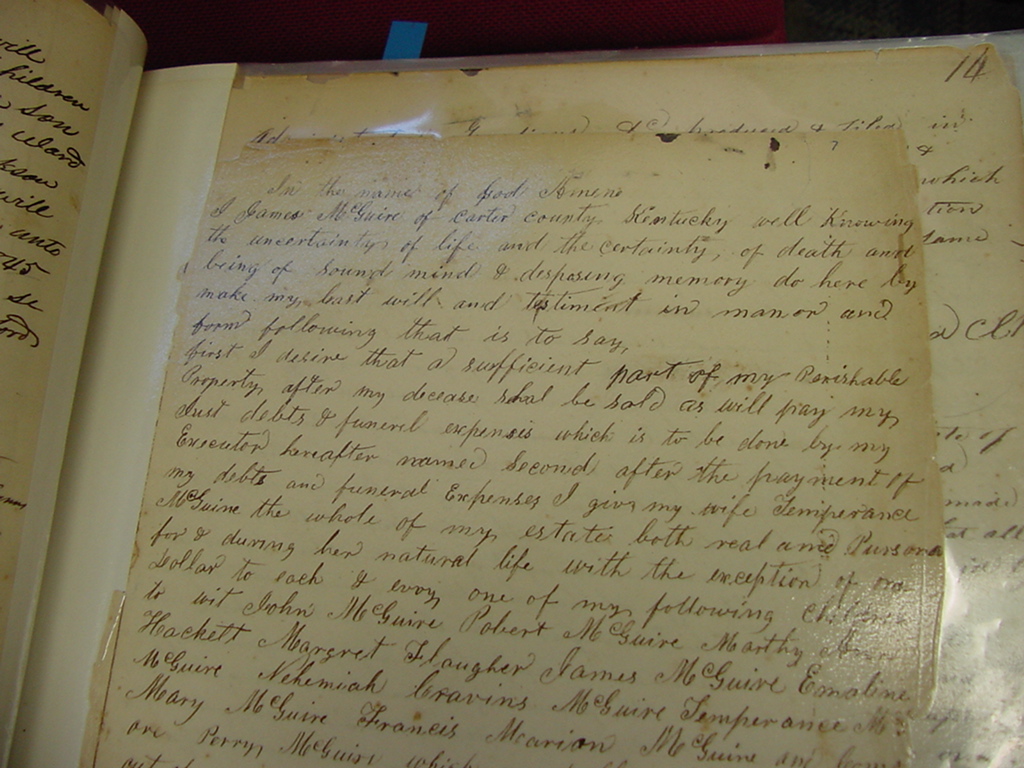 will
children
son
Ward
will
unto
45
se
14
&c produced & filed in
&
which
tion
same
In the name of God Amene
I James McGuire of carter county Kentucky well Knowing
the uncertainty of life and the certainty, of death and
being of sound mind & desposing memory do here by
make my last will and testiment in manor and
form following that is to say,
first I desire that a sufficient part of my Perishable
Property after my decease shal be sold as will pay my
Just debts & funerel expensis which is to be done by my
Executor hereafter named Second after the payment of
my debts and funeral Expenses I give my wife Temperance
McGuire the whole of my estate both real and Pursona
for & during her natural life with the exception of one
Dollar to each & evry one of my following Children
to wit John McGuire Robert McGuire Marthy Ann
Hackett Margret Flaugher James McGuire Emaline
McGuire Nehemiah Cravins McGuire Temperance Mc
Mary McGuire Francis Marion McGuire and
ore Perry McGuire which
out
of
at all